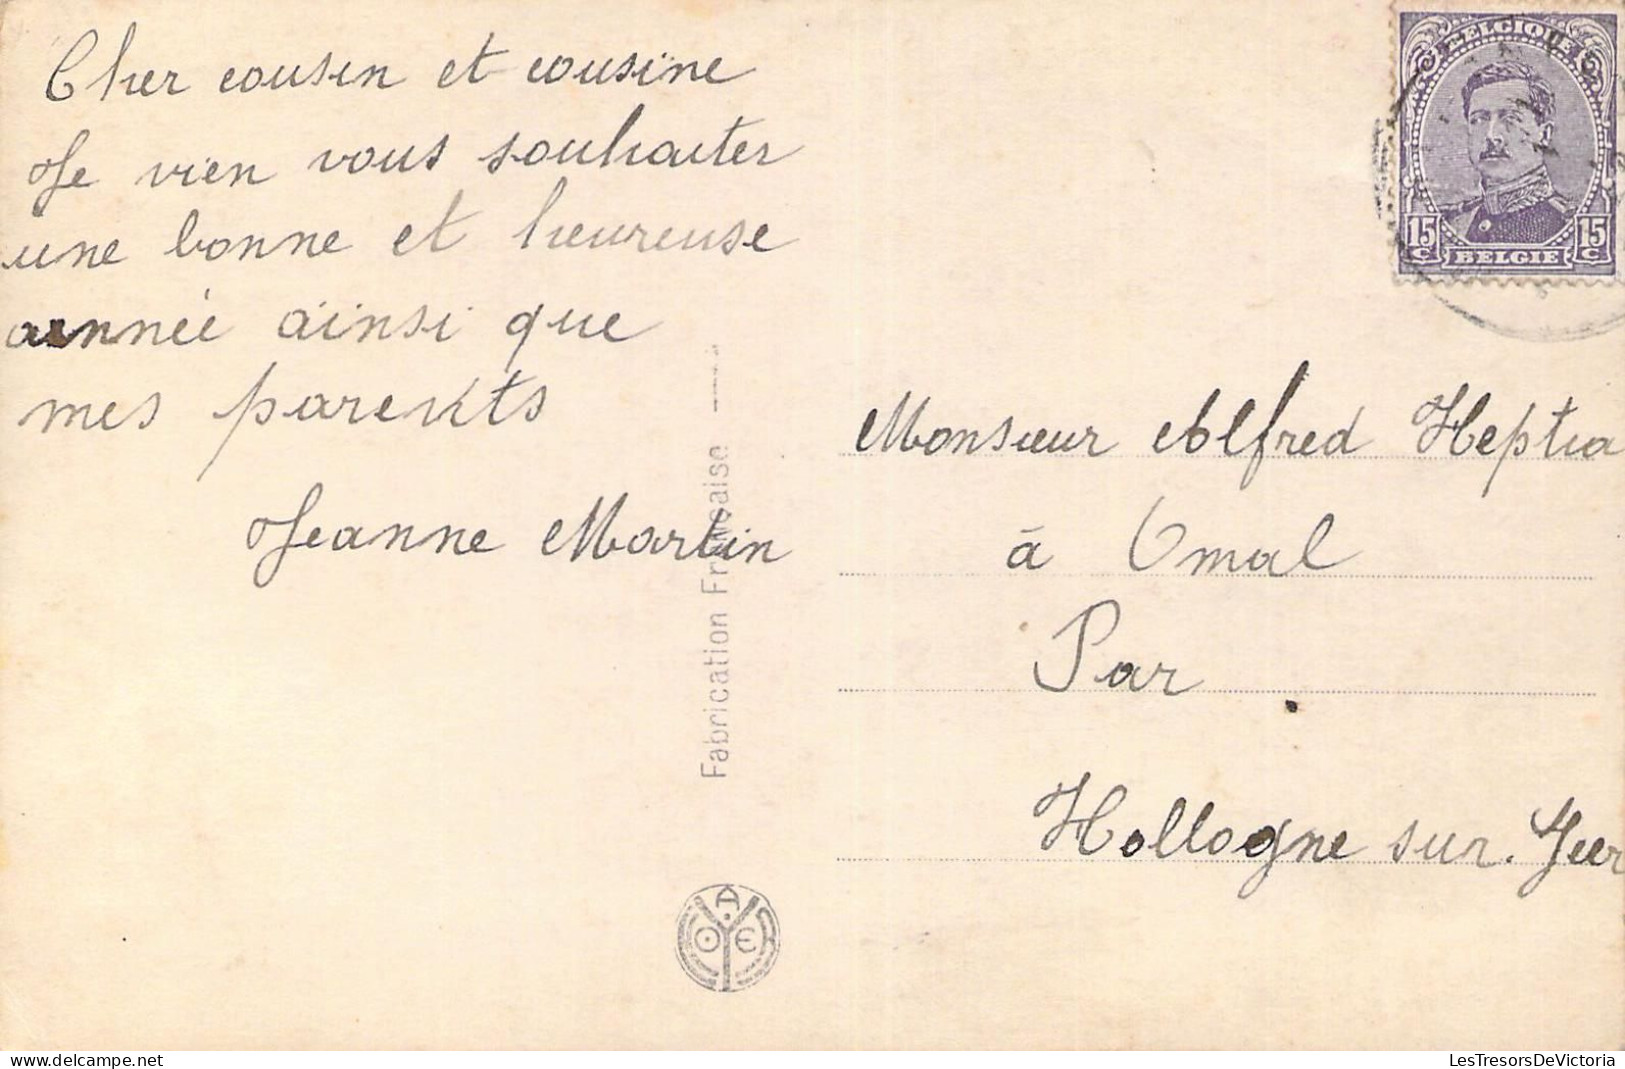 Cher cousin et cousine
Je vien vous souhaiter
une bonne et heureuse
année ainsi que
mes parents
Jeanne Martin
Fabrication Française
A
O E
BELGIQUE
15 15
C BELGIE C
Monsieur Alfred Heptia
à Omal
Par
Hollogne sur. Geer
www.delcampe.net
LesTresorsDeVictoria